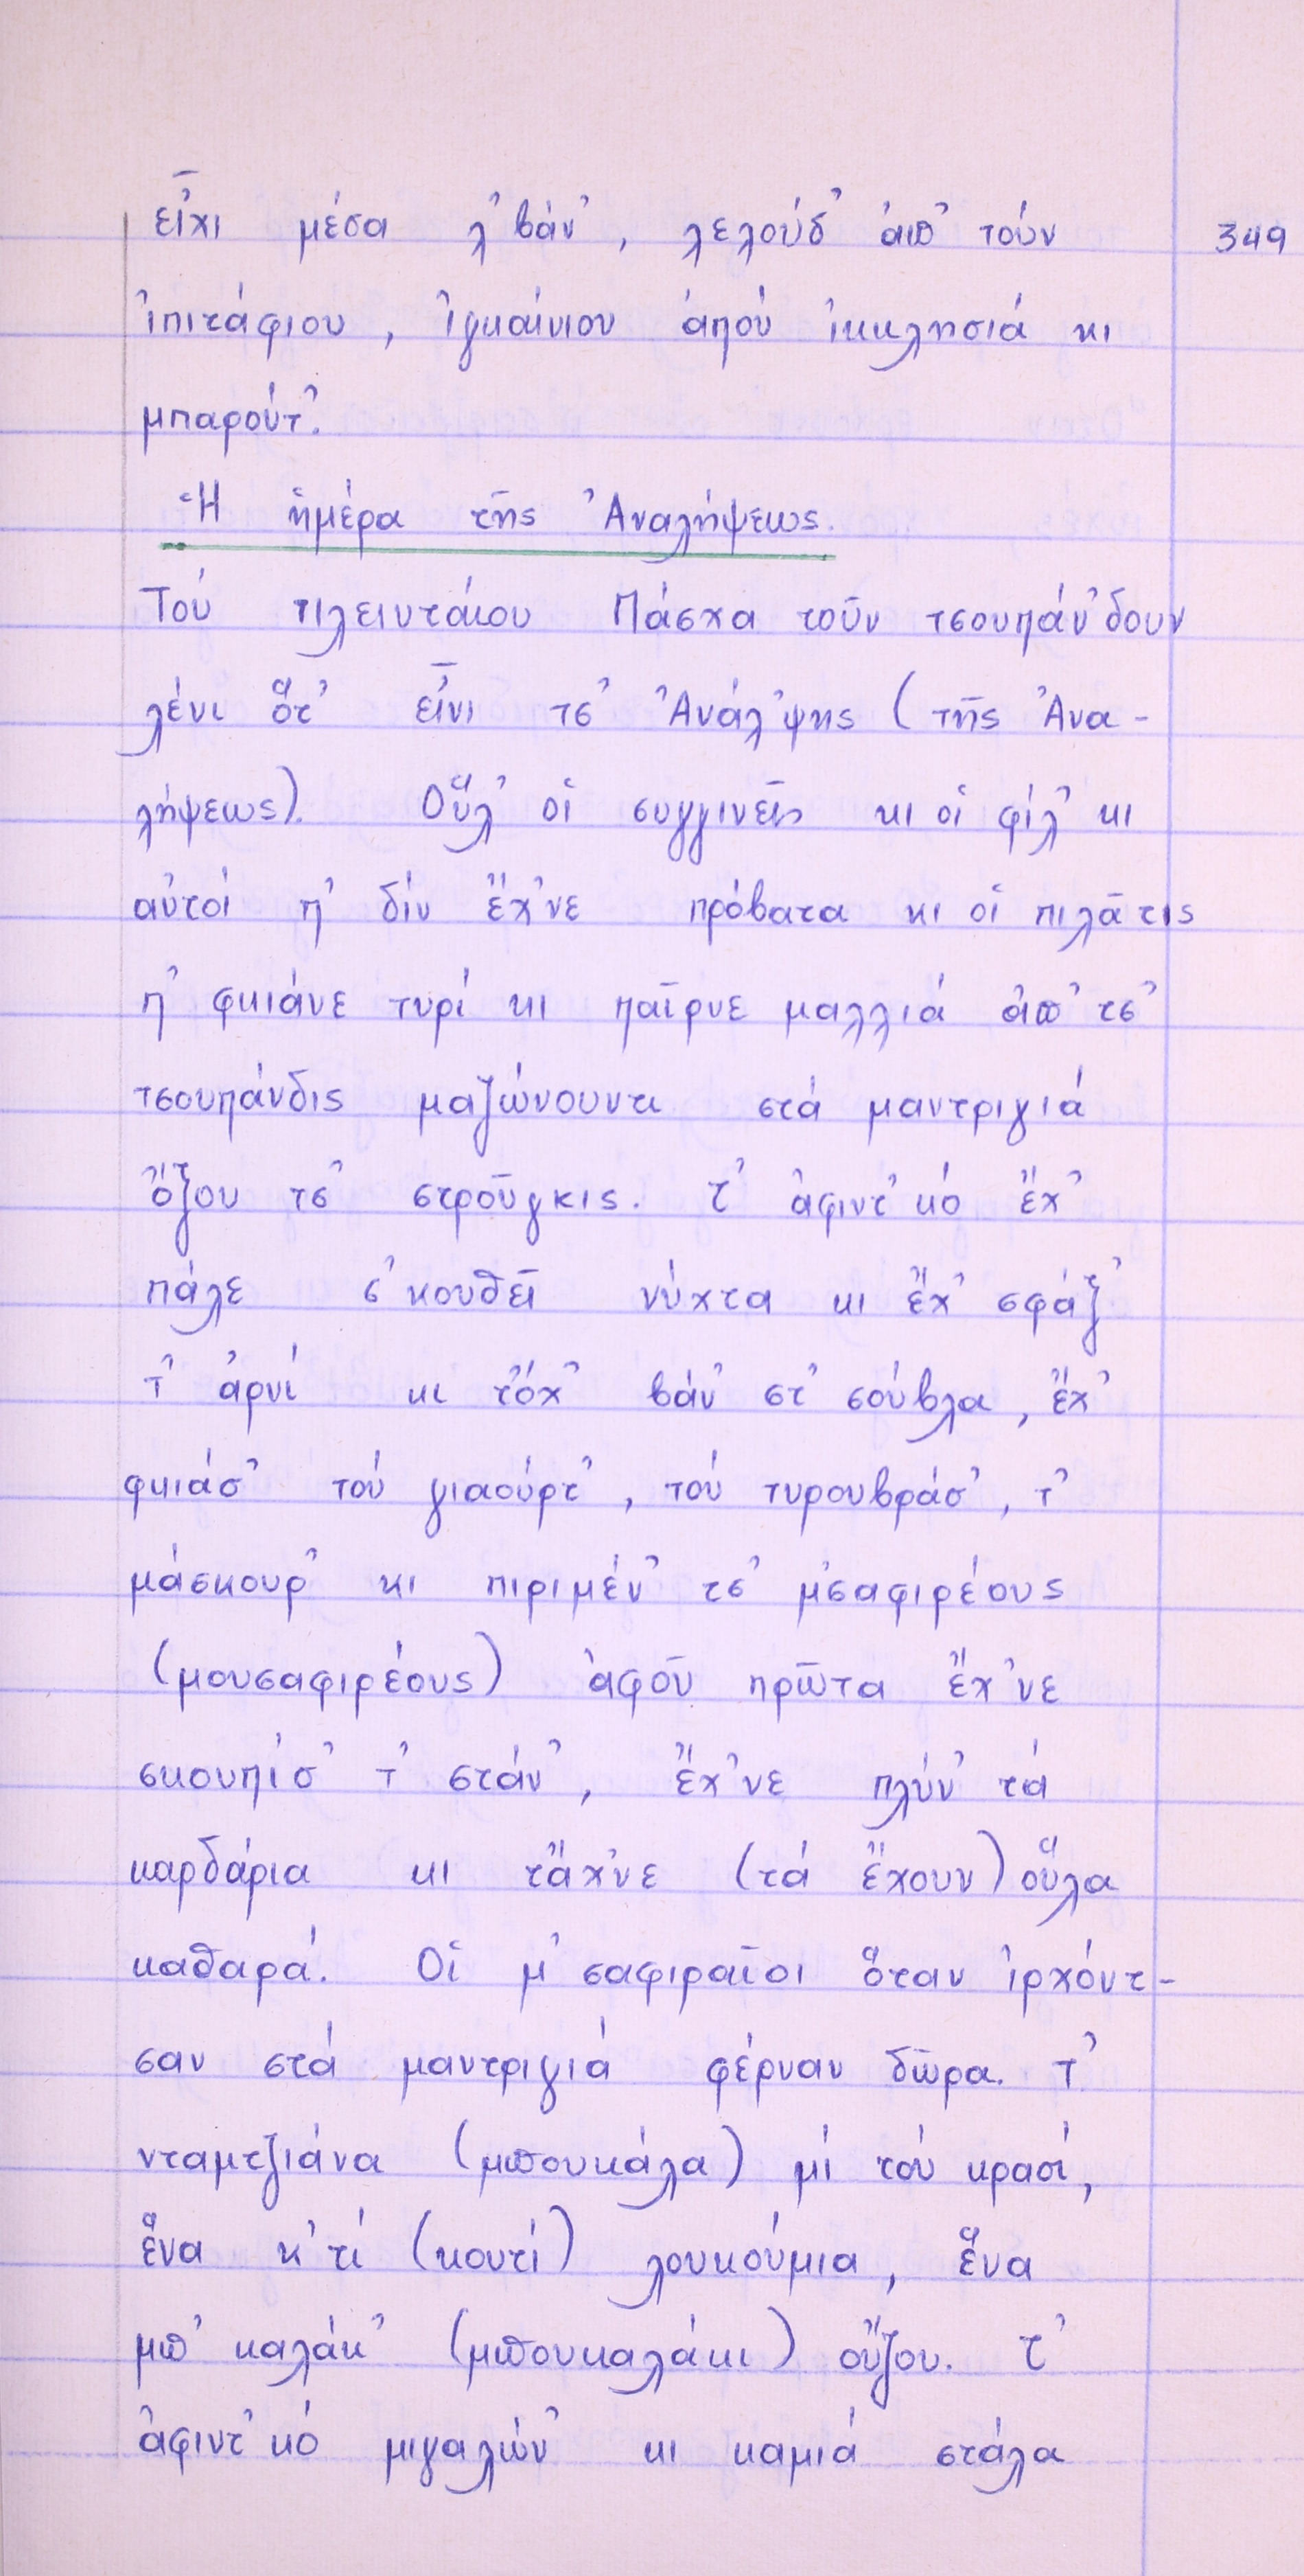 εἶχι μέσα λ᾿βάν᾿, λελούδ᾿ ἀπ᾿ τούν 349
ἰπιτάφιου, ἰγκαίνιου ἀπού ἰκκλησιά κι
μπαρούτ᾿.
Ἡ ἡμέρα τῆς Ἀναλήψεως.
Τού τιλειυταίου Πάσχα τοῦν τσουπάν᾿δουν
λένι ὅτ᾿ εἶνι τσ᾿ Ἀνάλ᾿ψης (τῆς Ἀνα-
λήψεως). Οὕλ᾿ οἱ συγγινεῖς κι οἱ φίλ᾿ κι
αὐτοί π᾿ δίν ἔχ᾿νε πρόβατα κι οἱ πιλᾶτις
π᾿ φκιάνε τυρί κι παῖρνε μαλλιά ἀπ᾿ τσ᾿
τσουπάνδις μαζώνουντι στά μαντριγιά
ὄξου τσ᾿ στροῦγκις. Τ᾿ ἀφιντ᾿κό ἔχ᾿
πάλε σ᾿κουθεῖ νύχτα κι ἔχ᾿ σφάξ᾿
τ᾿ ἀρνί κι τόχ᾿ βάν᾿ στ᾿ σούβλα, ἔχ᾿
φκιάσ᾿ τού γιαούρτ᾿, τού τυρουβράσ᾿, τ᾿
μάσκουρ᾿ κι πιριμέν᾿ τσ᾿ μ᾿σαφιρέους
(μουσαφιρέους) ἀφοῦ πρῶτα ἔχ᾿νε
σκουπίσ᾿ τ᾿ στάν᾿, ἔχ᾿νε πλύν᾿ τά
καρδάρια κι τἄχ᾿νε (τά ἔχουν) οὕλα
καθαρά. Οἱ μ᾿σαφιραῖοι ὅταν ἰρχόντ-
σαν στά μαντριγιά φέρναν δῶρα. Τ᾿
νταμτζιάνα (μπουκάλα) μί τού κρασί,
ἕνα κ᾿τί (κουτί) λουκούμια, ἕνα
μπ᾿καλάκ᾿ (μπουκαλάκι) οὔζου. Τ᾿
ἀφιντ᾿κό μιγαλών᾿ κι καμιά στάλα